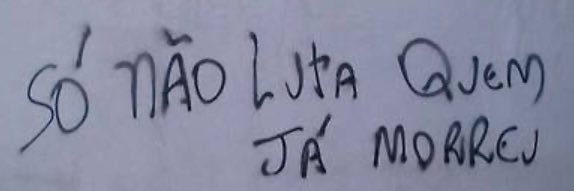 SÓ NÃO LUTA QUEM
JÁ MORREU